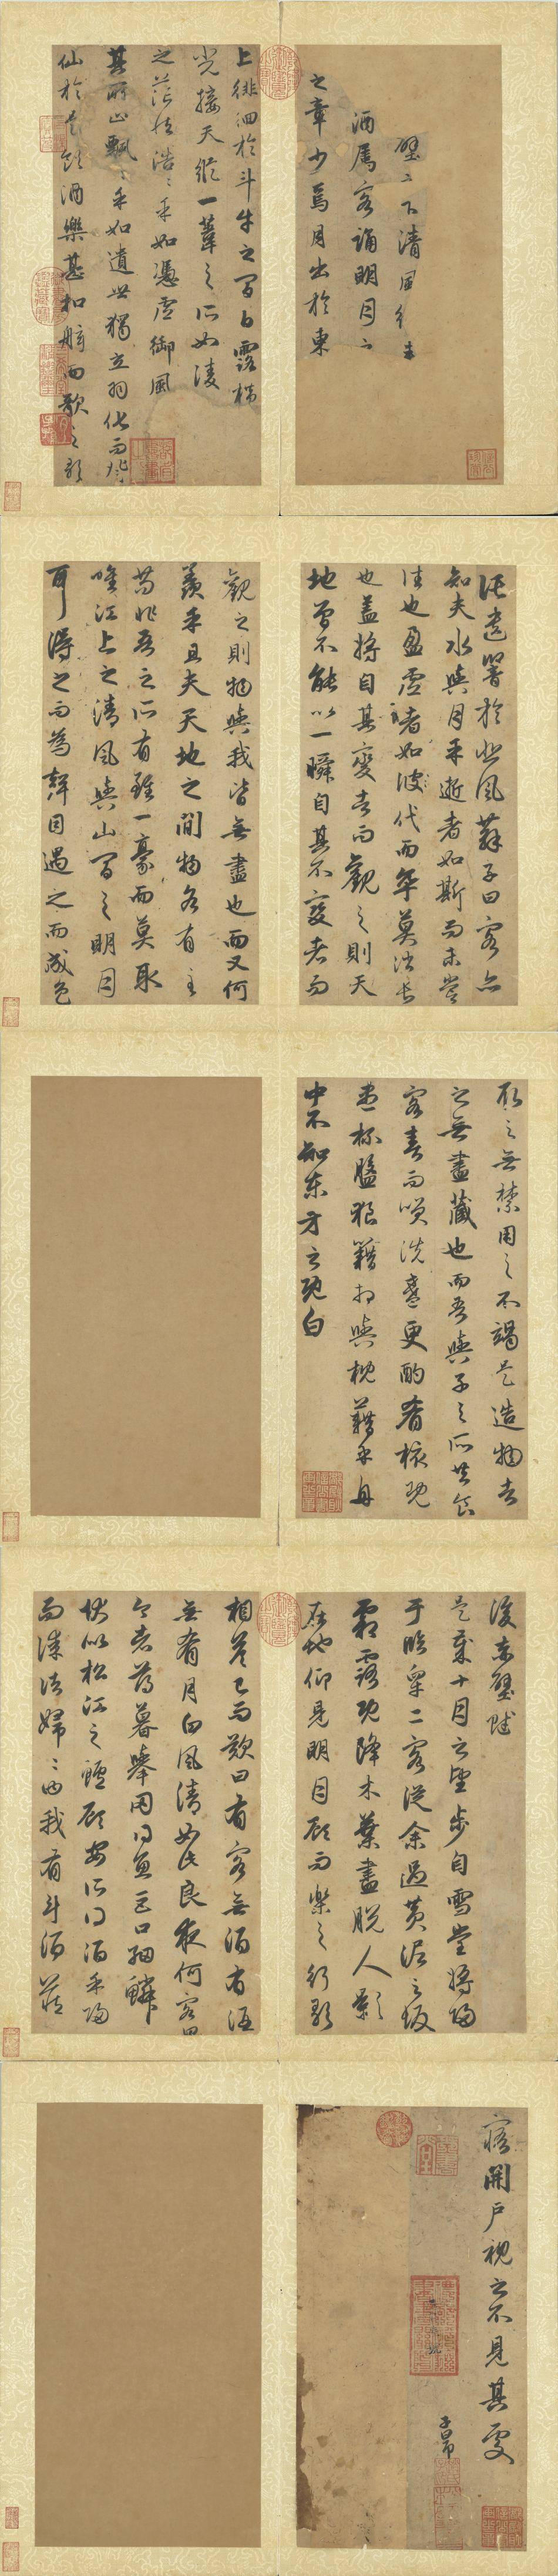 壁之下清風徐來
酒屬客誦明月之
之章少焉月出於東
上徘徊於斗牛之間白露橫
光接天縱一葦之所如淩
之茫然浩〻乎如憑虛御風
其所止飄〻乎如遺世獨立羽化而登
仙於是飲酒樂甚扣舷而歌之歌
託遺響於悲風蘇子曰客亦
知夫水與月乎逝者如斯而未嘗
往也盈虛者如彼代而卒莫消長
也蓋將自其變者而觀之則天
地曾不能以一瞬自其不變者而
觀之則物與我皆無盡也而又何
羨乎且夫天地之間物各有主
苟非吾之所有雖一豪而莫取
唯江上之清風與山間之明月
耳得之而為聲目遇之而成色
取之無禁用之不竭是造物者
之無盡藏也而吾與子之所共食
客喜而笑洗盞更酌肴核既
盡杯盤狼籍相與枕藉乎舟
中不知東方之既白
後赤壁賦
是歲十月之望步自雪堂將歸
于臨皋二客從余過黃泥之坂
霜露既降木葉盡脫人影
在地仰見明月顧而樂之行歌
相答已而歎曰有客無酒有酒
無肴月白風清如此良夜何客曰
今者薄暮舉网得魚巨口細鱗
狀似松江之鱸顧安所得酒乎歸
而謀諸婦〻曰我有斗酒藏
寤開戶視之不見其處
子昂